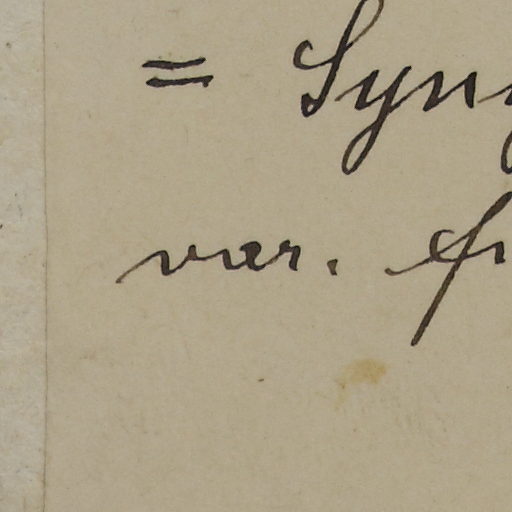 = Syn
var.